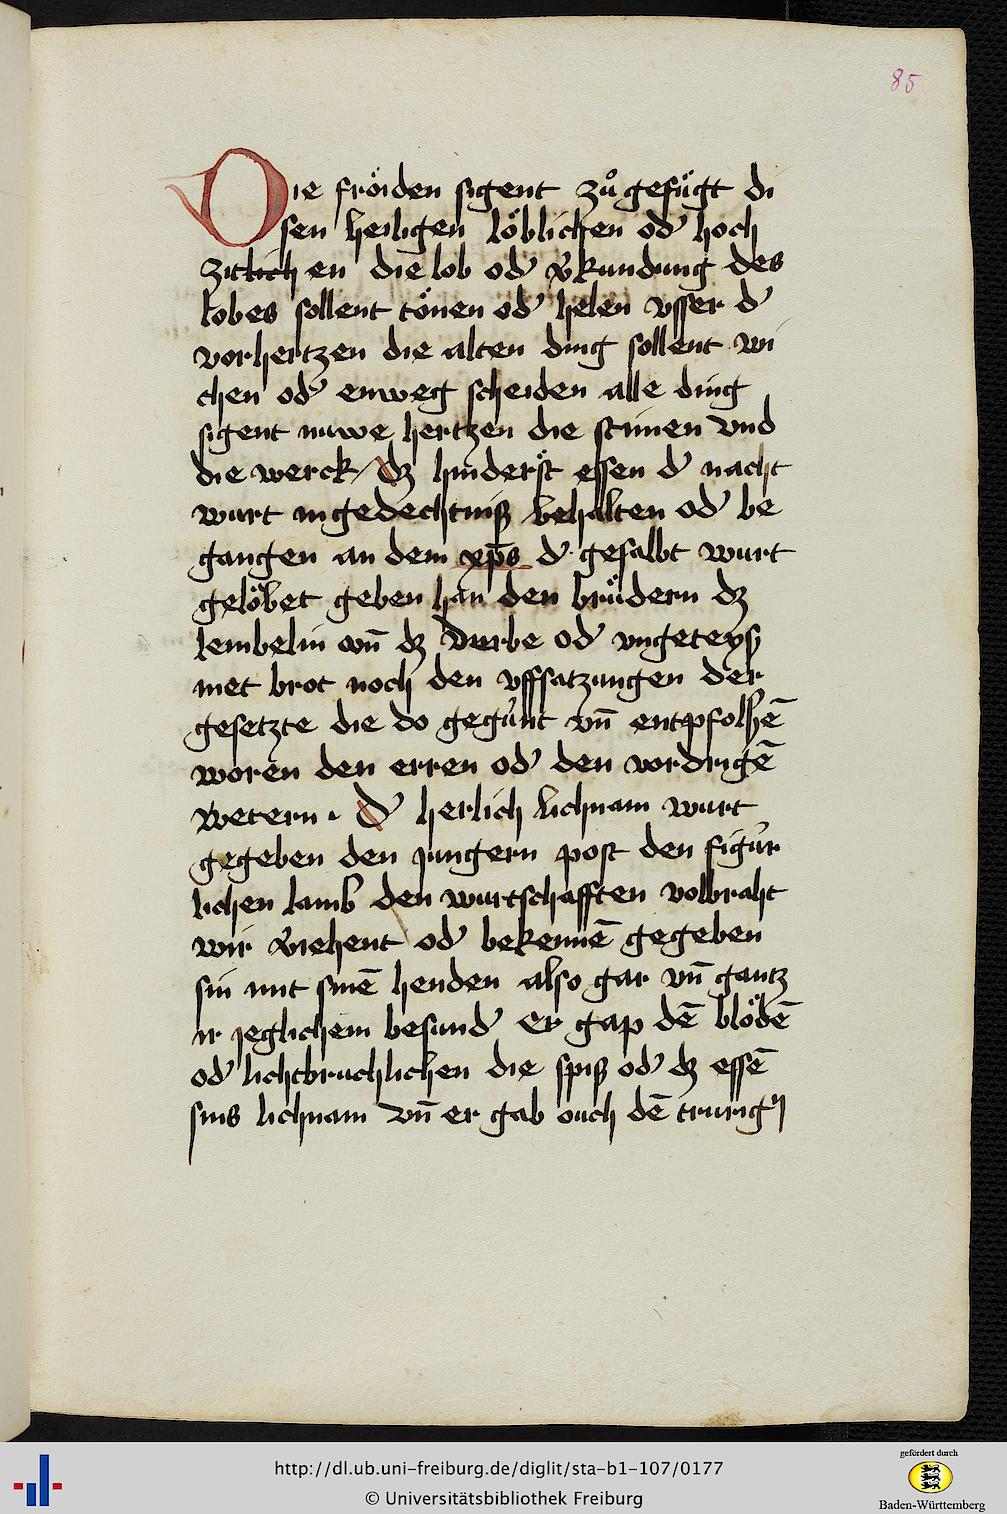 85
Die fröiden sigent zůgefügt di
sen heiligen löblichen od' hoch
zitlich en die lob od' v̉kundung des
lobes sollent tönen od' helen vsser d'
vorhertzen die alten ding sollent wi
chen od' enweg scheiden alle ding
sigent nuwe hertzen die stimen vnd
die werck / dz hinderst essen d' nacht
wurt ingedechtniß behalten od' be
gangen an dem xp̄s d' gesalbt wurt
gelöbet geben han den brüdern dz
lembelin vn̄ dz derbe od' vngeteys
met brot noch den vffsatzungen der
gesetzte die do gegunt vn̄ entpfolhē
woren den erren od' den vordrigē
vettern · d' herlich lichnam wurt
gegeben den jungern post den figur
lichen lamb den wurtschafften volbraht
wir v̉iehent od' bekennē gegeben
sin mit sinē henden also gar vn̄ gantz
ir jeglichem besund' Er gap dē blödē
od' lichtbruchlichen die spiß od' dz essē
sins lichnam vn̄ er gab ouch dē trurign
http://dl.ub.uni-freiburg.de/diglit/sta-b1-107/0177
© Universitätsbibliothek Freiburg
gefördert durch
Baden-Württemberg